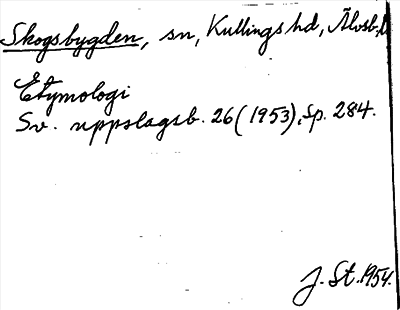 Skogsbygden, sn, Kullings hd, Älvsb. l
Etymologi
Sv. uppslagsb. 26 (1953), sp. 284.
J. St. 1954.